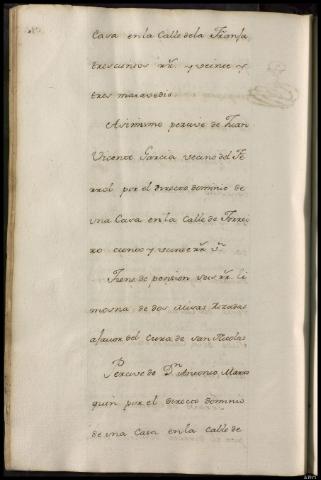 Casa en la Calle de la Franja
trescientos rr.^s y veinte y
tres maravedis
Asimismo percive de Juan
Vicente Garcia vecino del Fe
rrol por el directo dominio de
una Casa en la Calle de Torrei
ro ciento y veinte rr.^s v.^n
Tiene de pension seis rr.^s li
mosna de dos Misas Rezadas
a favor del Cura de San Nicolas
Percive de D.^n Antonio Marro
quin por el directo dominio
de una Casa en la Calle de